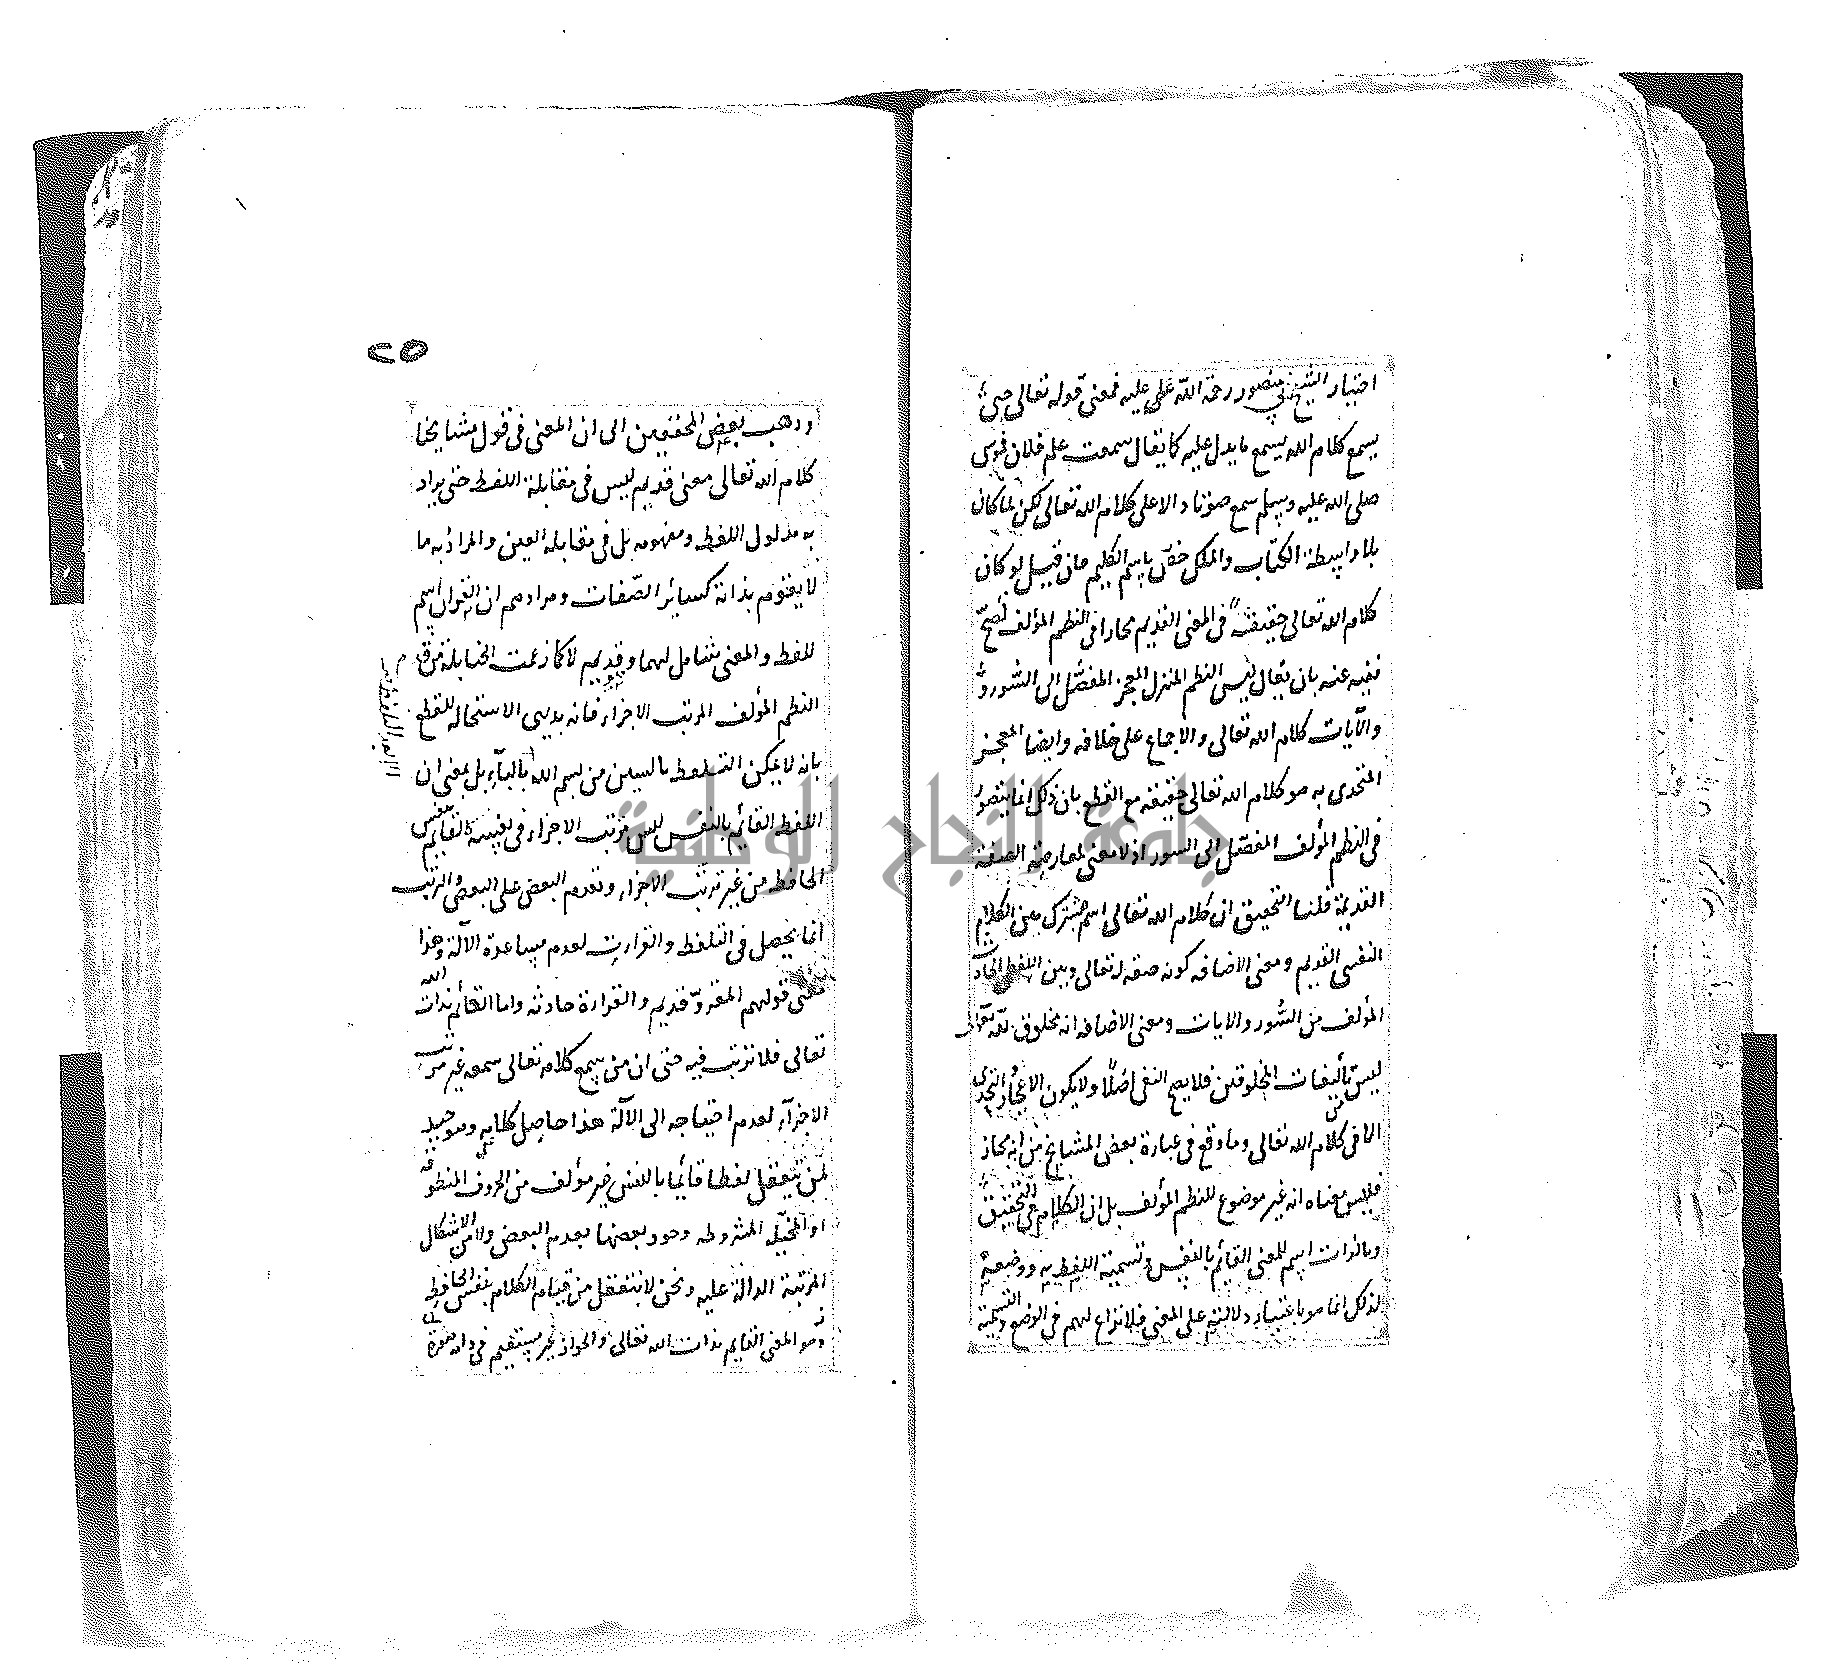 اختيار الشيخ ابي منصور رحمة الله على عليه فمعنى قوله تعالى حتى
يسمع كلام الله يسمع ما يدل عليه كما يقال سمعت علم فلان فموسى
صلى الله عليه وسلم سمع صوتا دالا على كلام الله تعالى لكن لما كان
بلا واسطة الكتاب والملك خص باسم الكليم فان قيل لو كان
كلام الله تعالى حقيقة في المعنى القديم مجازا في النظم المؤلف لصح
نفيه عنه بان يقال ليس النظم المنزل المعجز المفصل الى السور و
والآيات كلام الله تعالى والاجماع على خلافه وايضا المعجز
المتحدى به هو كلام الله تعالى حقيقة مع القطع بان ذلك انما يتصور
في النظم المؤلف المفصل الى السور اذ لا معنى لمعارضة الصفة
القديمة قلنا التحقيق ان كلام الله تعالى اسم مشترك بين الكلام
النفسي القديم ومعنى الاضافه كونه صفه له تعالى وبين اللفظ الحادث
المؤلف من السور والايات ومعنى الاضافه انه مخلوق لله تعالى
ليس تأليفات المخلوقين فلا يصح النفى اصلا ولا يكون الاعجاز التحدي
الا في كلام الله تعالى وما وقع في عبارة بعض المشايخ من انه مجاز
فليس معناه انه غير موضوع للنظم المؤلف بل ان الكلام في التحقيق
وبالذات اسم للمعنى القائم بالنفس وتسمية اللفظ به ووضعه
لذلك انما هو باعتبار دلالته على المعنى فلا نزاع لهم في الوضع والتسمية
٢٥
وذهب بعض المحققين الى ان المعنى في قول مشايخنا
كلام الله تعالى معنى قديم ليس في مقابلة اللفظ حتى يراد
به مدلول اللفظ ومفهومه بل في مقابله العين والمراد به ما
لا يقوم بذاته كسائر الصفات ومرادهم ان القران اسم
للفظ والمعنى شامل لهما وقديم لا كما زعمت الحنابلة من قدم
النظم المؤلف المرتب الاجزاء فانه بديهى الاستحاله للقطع
بانه لا يمكن التلفظ بالسين من بسم الله بالباء بل بمعنى ان
اللفظ القائم بالنفس ليس مرتب الاجزاء في نفسه كالقائم بنفس
الحافظ من غير ترتب الاجزاء وتقدم البعض على البعض والترتب
انما يحصل في التلفظ والقراءت لعدم مساعدة الآلة وهذا
معنى قولهم المقرو قديم والقراءة حادثه واما القائم بذات الله
تعالى فلا ترتب فيه حتى ان من سمع كلامه تعالى سمعه غير مرتب
الاجزاء لعدم احتياجه الى الآلة هذا حاصل كلامه وهو جيد
لمن يتعقل لفظا قائما بالنفس غير مؤلف من الحروف المنطوقه
او المخيلة المشروطه وجود بعضها بعدم البعض ولا من الاشكال
المرتبة الدالة عليه ونحن لا نتعقل من قيام الكلام بنفس الحافظ
وهو المعنى القايم بذات الله تعالى والجواز غير مستقيم في
جامعة النجاح الوطنية